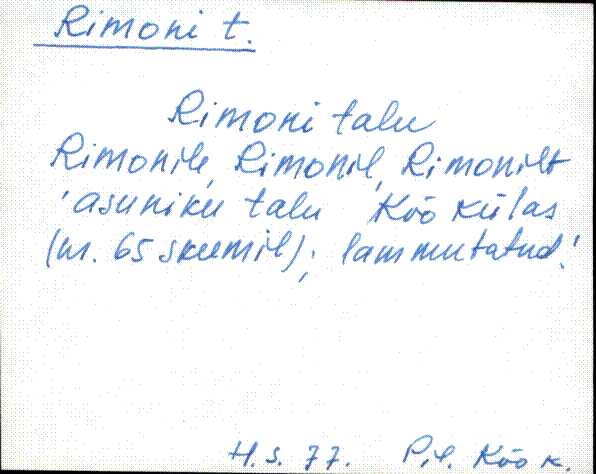 Rimoni t.
Rimoni talu
Rimonile, Rimonil, Rimonilt
'asuniku talu Kõo külas
(nr. 65 skeemil); lammutatud.'
H.S. 77. Pil Kõo k.